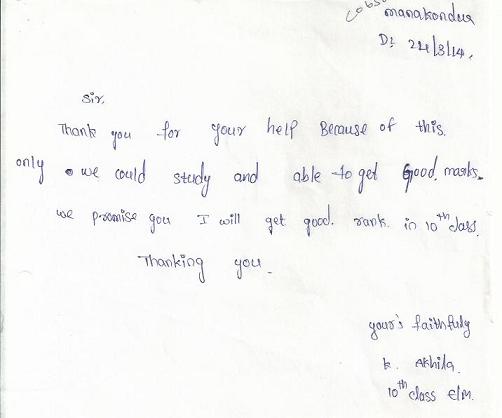 manakondur
D: 24/3/14.
Sir,
Thank you for your help Because of this.
only we could study and able to get Good. marks.
we promise you I will get good. rank. in 10th class.
Thanking you.
your's faithfully
k. Akhila.
10th class E/M.